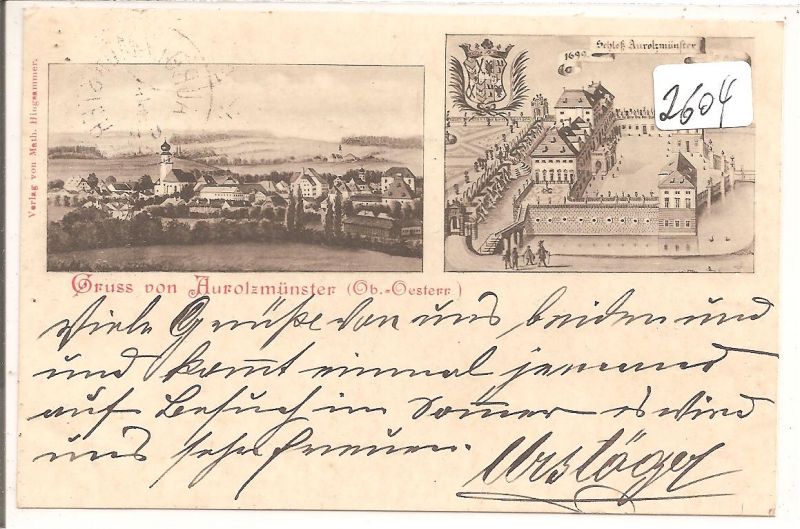 Verlag von Math. Hingsammer.
1699
Schloß Aurolzmünster
2604
Gruss von Aurolzmünster (Ob.-Oesterr.)
Viele Grüße von uns beiden und
und kommt einmal
auf Besuch im Sommer es wird
uns sehr freuen.